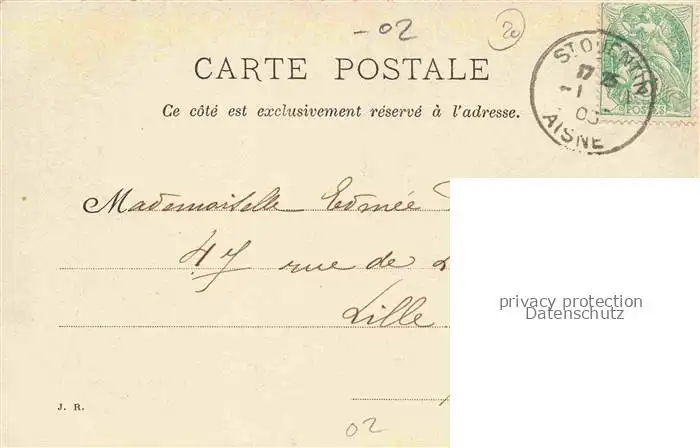 -02
20
CARTE POSTALE
Ce côté est exclusivement réservé à l'adresse.
ST QUENTIN
17
-1
03
AISNE
POSTES
Mademoiselle Edmée
47 rue de
Lille
privacy protection
Datenschutz
J. R.
02